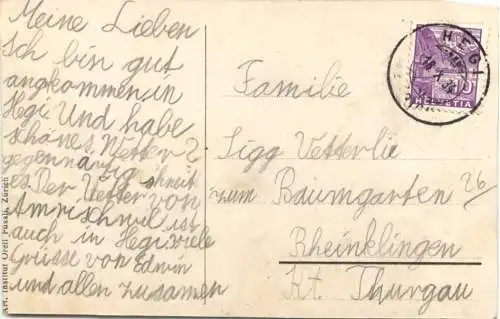 Meine Lieben
Ich bin gut
angkommen in
Hegi. Und habe
schönes Wetter
gegenwärtig schneit
es. Der Vetter von
Amrischwil ist
auch in Hegi. viele
Grüsse von Edwin
und allen zusamen
Familie
Sigg Vetterlie
zum Baumgarten 26
Rheinklingen
Kt. Thurgau
HEGI
HELVETIA
Art. Institut Orell Füssli, Zürich